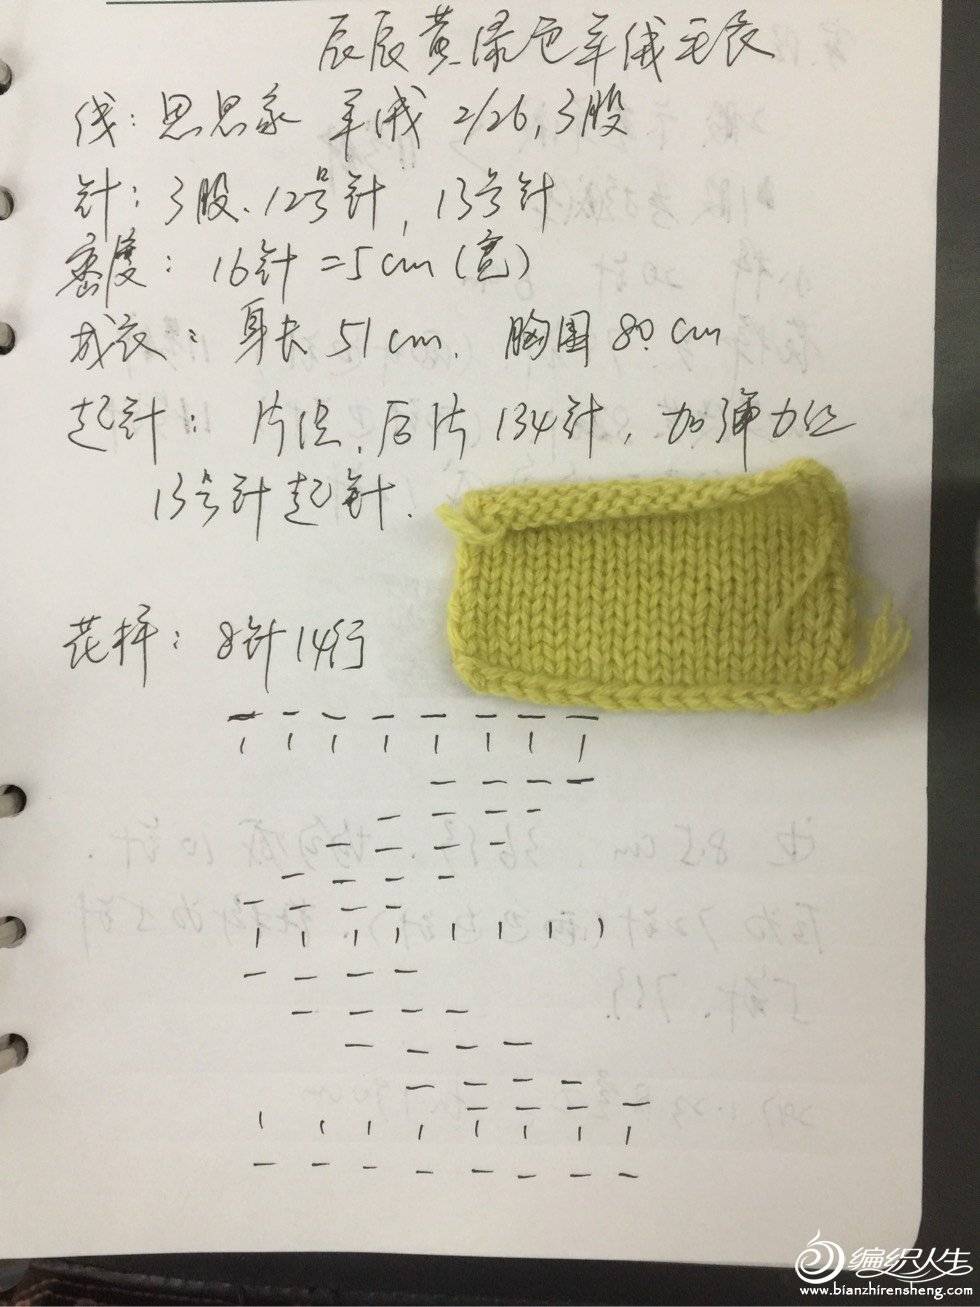 辰辰黄绿色羊绒毛衣
线：思思家 羊绒 2/26，3股
针：3股、12号针，13号针
密度：16针=5cm（宽）
成衣：身长51cm．胸围80cm
起针：片织，后片134针，加弹力丝
13号针起针．
花样：8针14行
— — — — — — — —
| | | | | | | |
— — — —
— — — —
— — — —
— — — —
— — — —
| | | | | | | |
— — — —
— — — —
— — — —
— — — —
— — — —
| | | | | | | |
— — — — — — — —
编织人生
www.bianzhirensheng.com